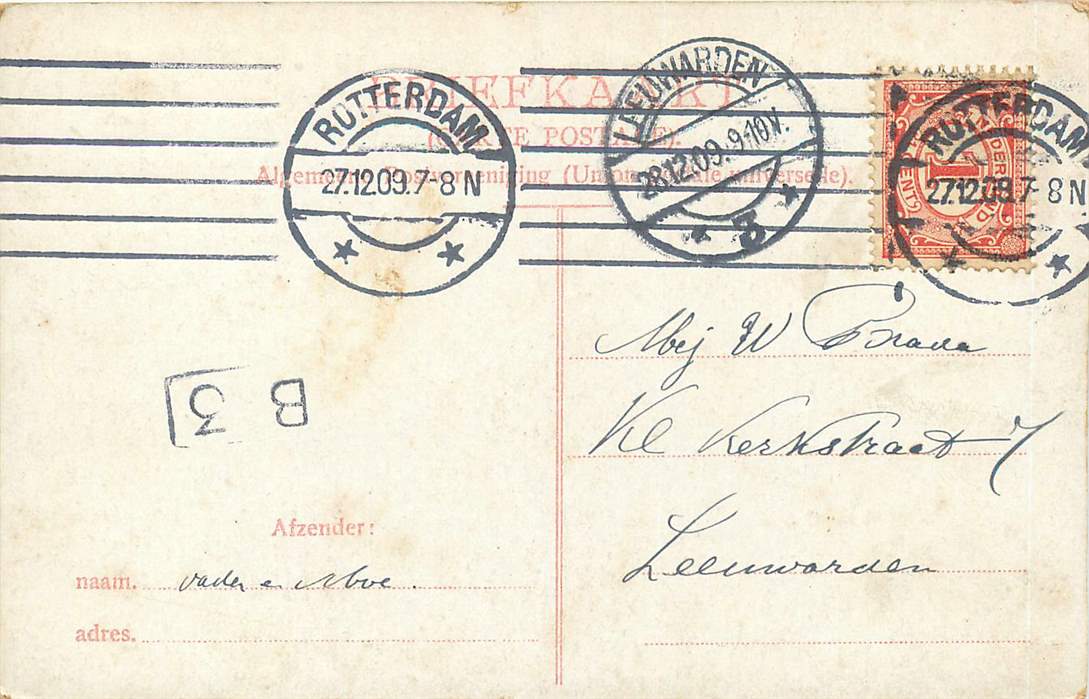 BRIEFKAART
(CARTE POSTALE).
Algemeene Postvereeniging (Union Postale Universelle).
ROTTERDAM
27.12.09.7-8 N
LEEUWARDEN
28.12.09.9-10V.
3
NEDERLAND
1
CENT
ROTTERDAM
27.12.09.7-8 N
B 3
Mej W Brada
Kl Kerkstraat 7
Leeuwarden
Afzender:
naam. vader e Moe.
adres.